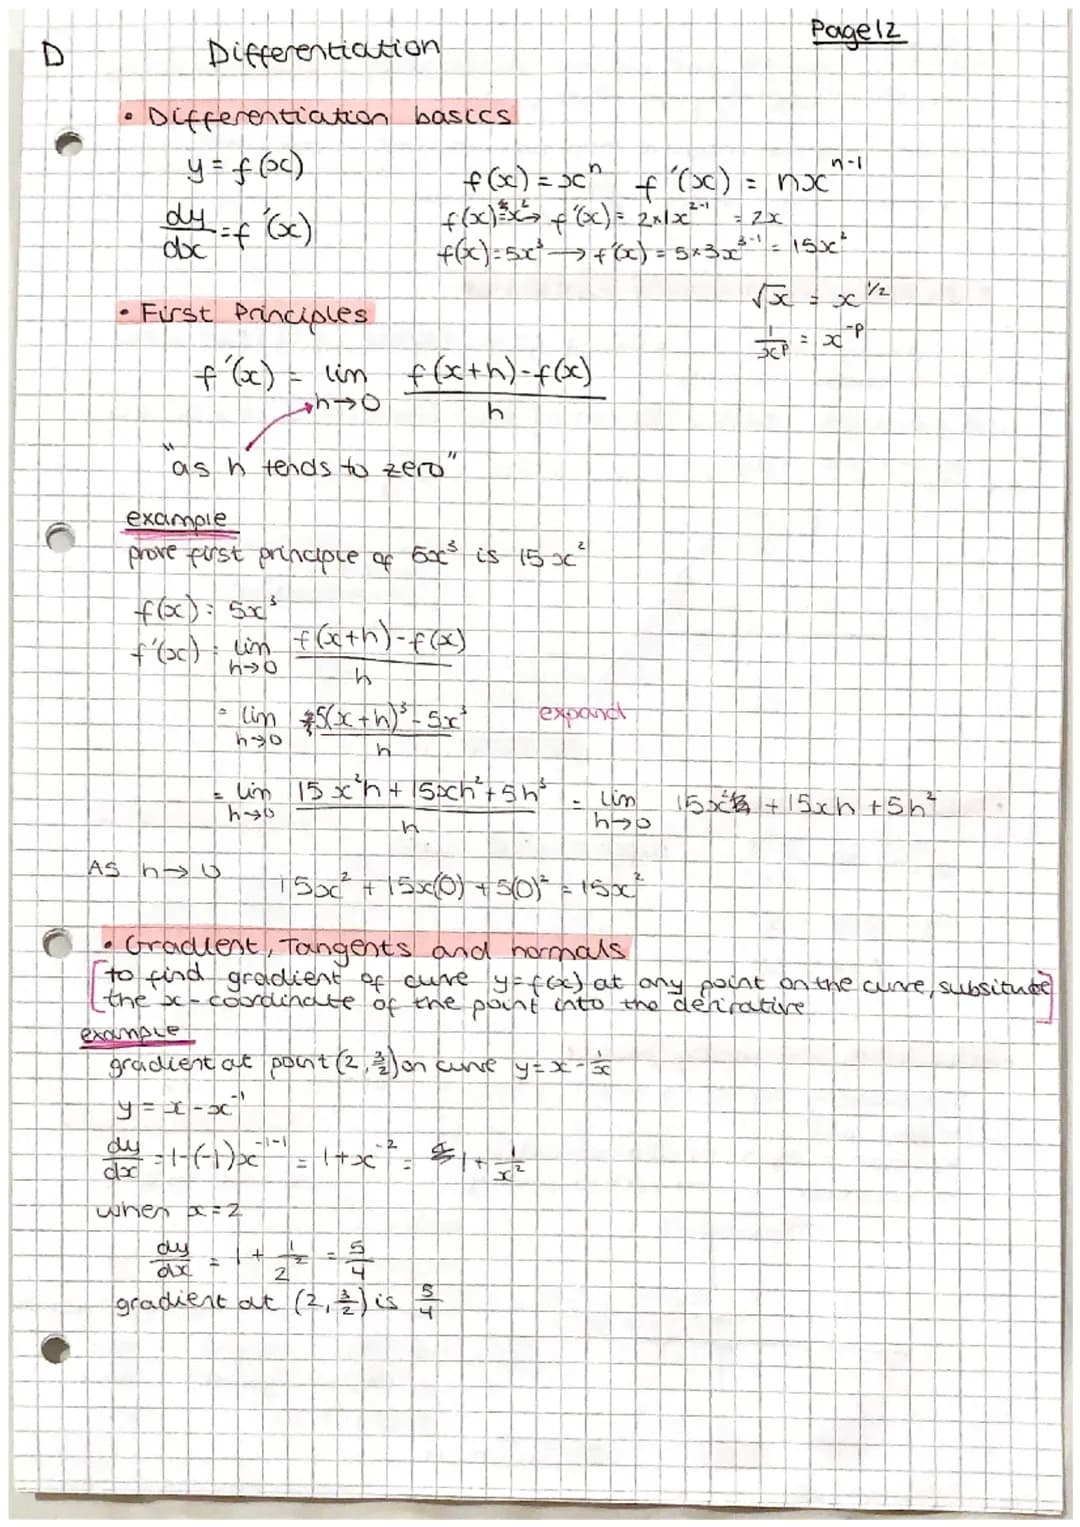 Page 12
D Differentiation
• Differentiation basics
y = f(x)
f(x) = xⁿ f'(x) = nxⁿ⁻¹
dy/dx = f'(x)
f(x) = x² → f'(x) = 2×1x²⁻¹ = 2x
f(x) = 5x³ → f'(x) = 5×3x³⁻¹ = 15x²
√x = x^1/2
• First Principles
1/xᵖ = x⁻ᵖ
f'(x) = lim h→0 f(x+h)-f(x)/h
"as h tends to zero"
example
prove first principle of 5x³ is 15x²
f(x) = 5x³
f'(x) = lim h→0 f(x+h)-f(x)/h
= lim h→0 5(x+h)³-5x³/h expand
= lim h→0 15x²h + 15xh² + 5h³/h = lim h→0 15x² + 15xh + 5h²
As h→0 15x² + 15x(0) + 5(0)² = 15x²
• Gradient, Tangents and normals
to find gradient of curve y=f(x) at any point on the curve, subsitute
the x-coordinate of the point into the derirative
example
gradient at point (2, 3/2) on curve y = x - 1/x
y = x - x⁻¹
dy/dx = 1-(-1)x⁻¹⁻¹ = 1 + x⁻² = 1 + 1/x²
when x=2
dy/dx = 1 + 1/2² = 5/4
gradient at (2, 3/2) is 5/4